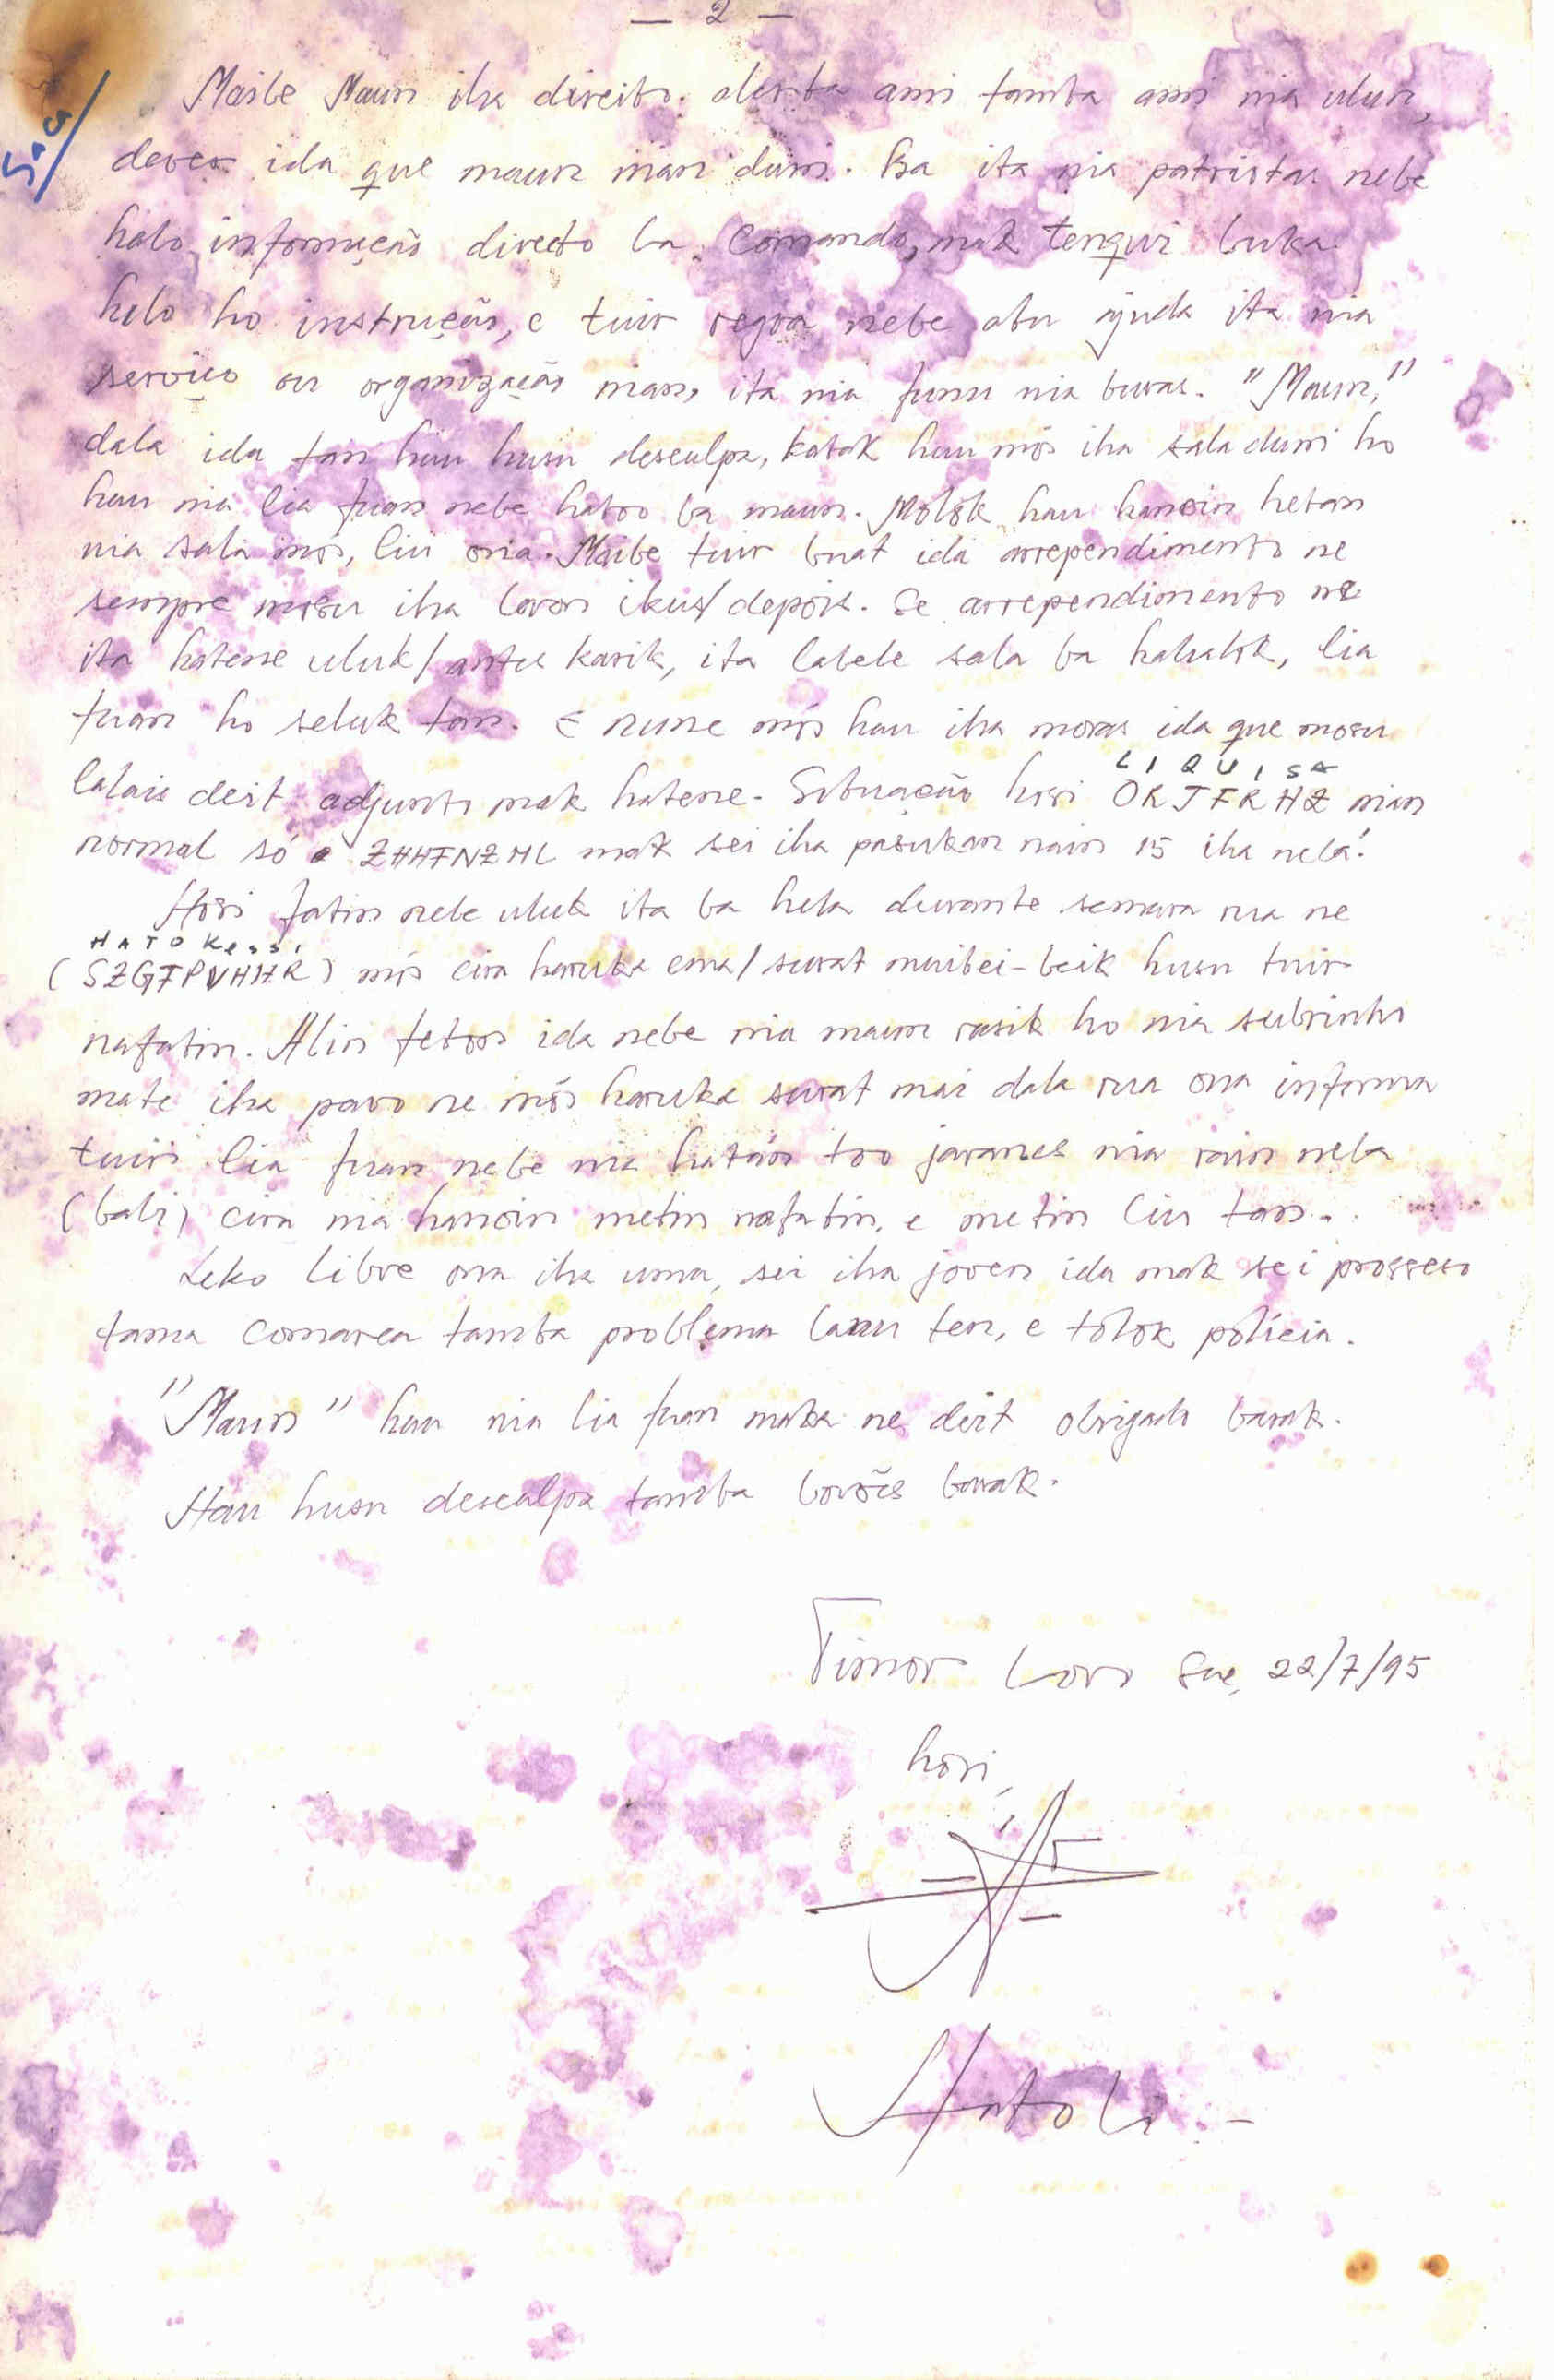 — 2 —
Maibe Maun iha direito. alerta ami tamba ami nia ulun,
dever ida que maun nian duni. Ba ita nia patriotas nebe
halo informação directo ba Comando, mak tenqui buka
halo ho instrução, e tuir regra nebe atu ajuda ita nia
serviço ou organização nian, ita nia funu nia buras. "Maun,"
dala ida tan hau husu desculpa, katak hau mós iha sala duni ho
hau nia lia fuan nebe hatoo ba maun. Molok hau hanoin hetan
nia sala mós, liu ona. Maibe tuir buat ida arrependimento ne
sempre mosu iha loron ikus/depois. Se arrependimento ne
ita hatene uluk/antes karik, ita labele sala ba hahalok, lia
fuan ho seluk tan. E nune mós hau iha moras ida que mosu
lalais deit adjunto mak hatene. Situação hosi LIQUISA ORJFRHZ nian
normal só ZHHFNZHL mak sei iha pasukan nain 15 iha neba.
Hosi fatin nebe uluk ita ba hela durante semana rua ne
HATO Kessi
(SZGTPVHHR) mós cira haruka ema/surat muibei-beik husu tuir
nafatin. Alin feton ida nebe nia maun rasik ho nia subrinho
mate iha povo ne mós haruka surat mai dala rua ona informa
tuir lia fuan nebe nia hatán too javanes nia rain neba
(bali) cira nia hanoin metin nafatin, e metin liu tan.
Leko libre ona iha uma, sei iha joven ida mak sei prosseso
tama Comarca tamba problema lanu ten, e tolok polícia.
"Maun" hau nia lia fuan maka ne deit obrigado barak.
Hau husu desculpa tamba borões barak.
Timor Loro Sae, 22/7/95
hosi,
Hatoli -